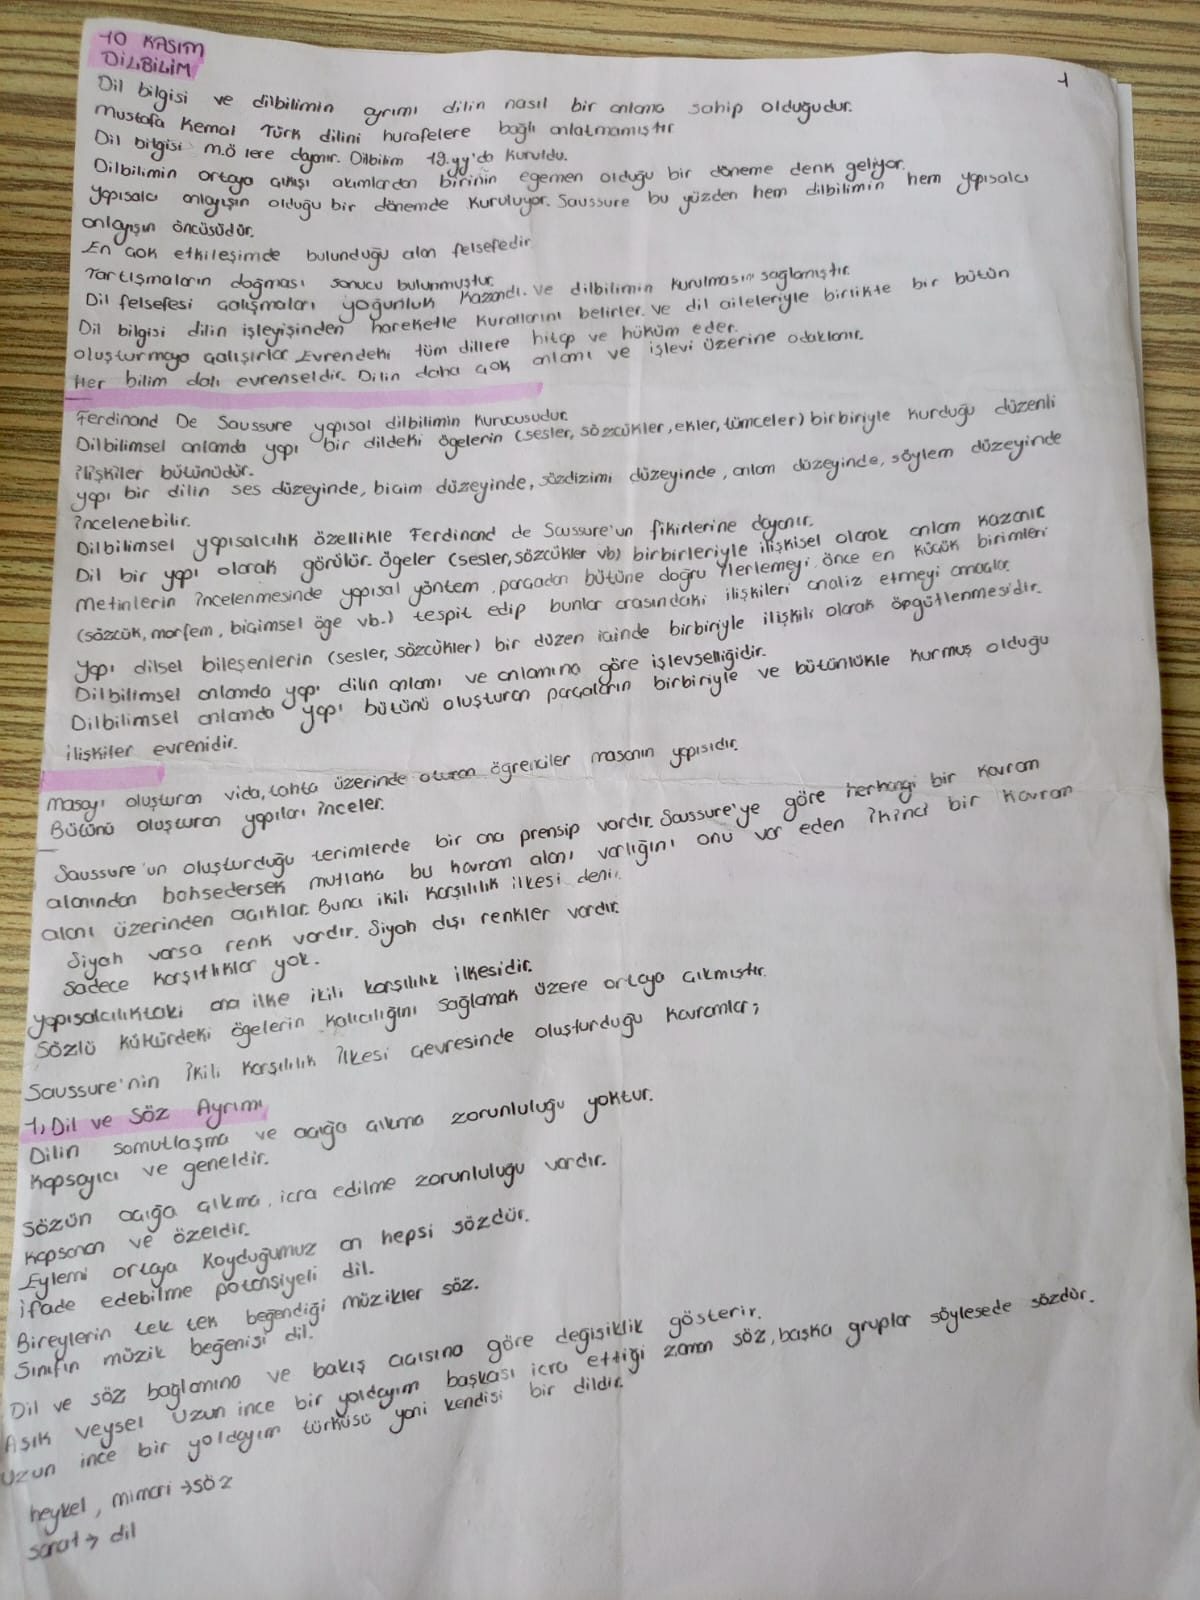 10 KASIM
DİLBİLİM
1
Dil bilgisi ve dilbilimin ayrımı dilin nasıl bir anlama sahip olduğudur.
Mustafa Kemal Türk dilini hurafelere bağlı anlatmamıştır
Dil bilgisi m.ö lere dayanır. Dilbilim 19.yy'da kuruldu.
Dilbilimin ortaya çıkışı akımlardan birinin egemen olduğu bir döneme denk geliyor.
Yapısalcı anlayışın olduğu bir dönemde kuruluyor. Saussure bu yüzden hem dilbilimin hem yapısalcı
anlayışın öncüsüdür.
En çok etkileşimde bulunduğu alan felsefedir
Tartışmaların doğması sonucu bulunmuştur.
Dil felsefesi çalışmaları yoğunluk kazandı. ve dilbilimin kurulmasını sağlamıştır.
Dil bilgisi dilin işleyişinden hareketle kurallarını belirler. ve dil aileleriyle birlikte bir bütün
oluşturmaya çalışırlar. Evrendeki tüm dillere hitap ve hüküm eder.
Her bilim dalı evrenseldir. Dilin daha çok anlamı ve işlevi üzerine odaklanır.
Ferdinand De Saussure yapısal dilbilimin kurucusudur.
Dilbilimsel anlamda yapı bir dildeki ögelerin (sesler, sözcükler, ekler, tümceler) birbiriyle kurduğu düzenli
ilişkiler bütünüdür.
Yapı bir dilin ses düzeyinde, biçim düzeyinde, sözdizimi düzeyinde, anlam düzeyinde, söylem düzeyinde
incelenebilir.
Dilbilimsel yapısalcılık özellikle Ferdinand de Saussure'un fikirlerine dayanır.
Dil bir yapı olarak görülür. Ögeler (sesler, sözcükler vb) birbirleriyle ilişkisel olarak anlam kazanır.
Metinlerin incelenmesinde yapısal yöntem, parçadan bütüne doğru ilerlemeyi, önce en küçük birimleri
(sözcük, morfem, biçimsel öge vb.) tespit edip bunlar arasındaki ilişkileri analiz etmeyi amaçlar.
Yapı dilsel bileşenlerin (sesler, sözcükler) bir düzen içinde birbiriyle ilişkili olarak örgütlenmesidir.
Dilbilimsel anlamda yapı dilin anlamı ve anlamına göre işlevselliğidir.
Dilbilimsel anlamda yapı bütünü oluşturan parçaların birbiriyle ve bütünlükle kurmuş olduğu
ilişkiler evrenidir.
Masayı oluşturan vida, tahta üzerinde oturan öğrenciler masanın yapısıdır.
Bütünü oluşturan yapıları inceler.
Saussure'un oluşturduğu terimlerde bir ana prensip vardır. Saussure'ye göre herhangi bir kavram
alanından bahsedersek mutlaka bu kavram alanı varlığını onu var eden ikinci bir kavram
alanı üzerinden açıklar. Buna ikili karşılılık ilkesi denir.
Siyah varsa renk vardır. Siyah dışı renkler vardır.
Sadece karşıtlıklar yok.
Yapısalcılıktaki ana ilke ikili karşılılık ilkesidir.
Sözlü kültürdeki ögelerin kalıcılığını sağlamak üzere ortaya çıkmıştır.
Saussure'nin İkili Karşılılık İlkesi çevresinde oluşturduğu kavramlar;
1) Dil ve Söz Ayrımı
Dilin somutlaşma ve açığa çıkma zorunluluğu yoktur.
Kapsayıcı ve geneldir.
Sözün açığa çıkma, icra edilme zorunluluğu vardır.
Kapsanan ve özeldir.
Eylemi ortaya koyduğumuz an hepsi sözdür.
İfade edebilme potansiyeli dil.
Bireylerin tek tek beğendiği müzikler söz.
Sınıfın müzik beğenisi dil.
Dil ve söz bağlamına ve bakış açısına göre değişiklik gösterir.
Aşık Veysel Uzun ince bir yoldayım başkası icra ettiği zaman söz, başka gruplar söylesede sözdür.
Uzun ince bir yoldayım türküsü yani kendisi bir dildir.
heykel, mimari → söz
sanat → dil